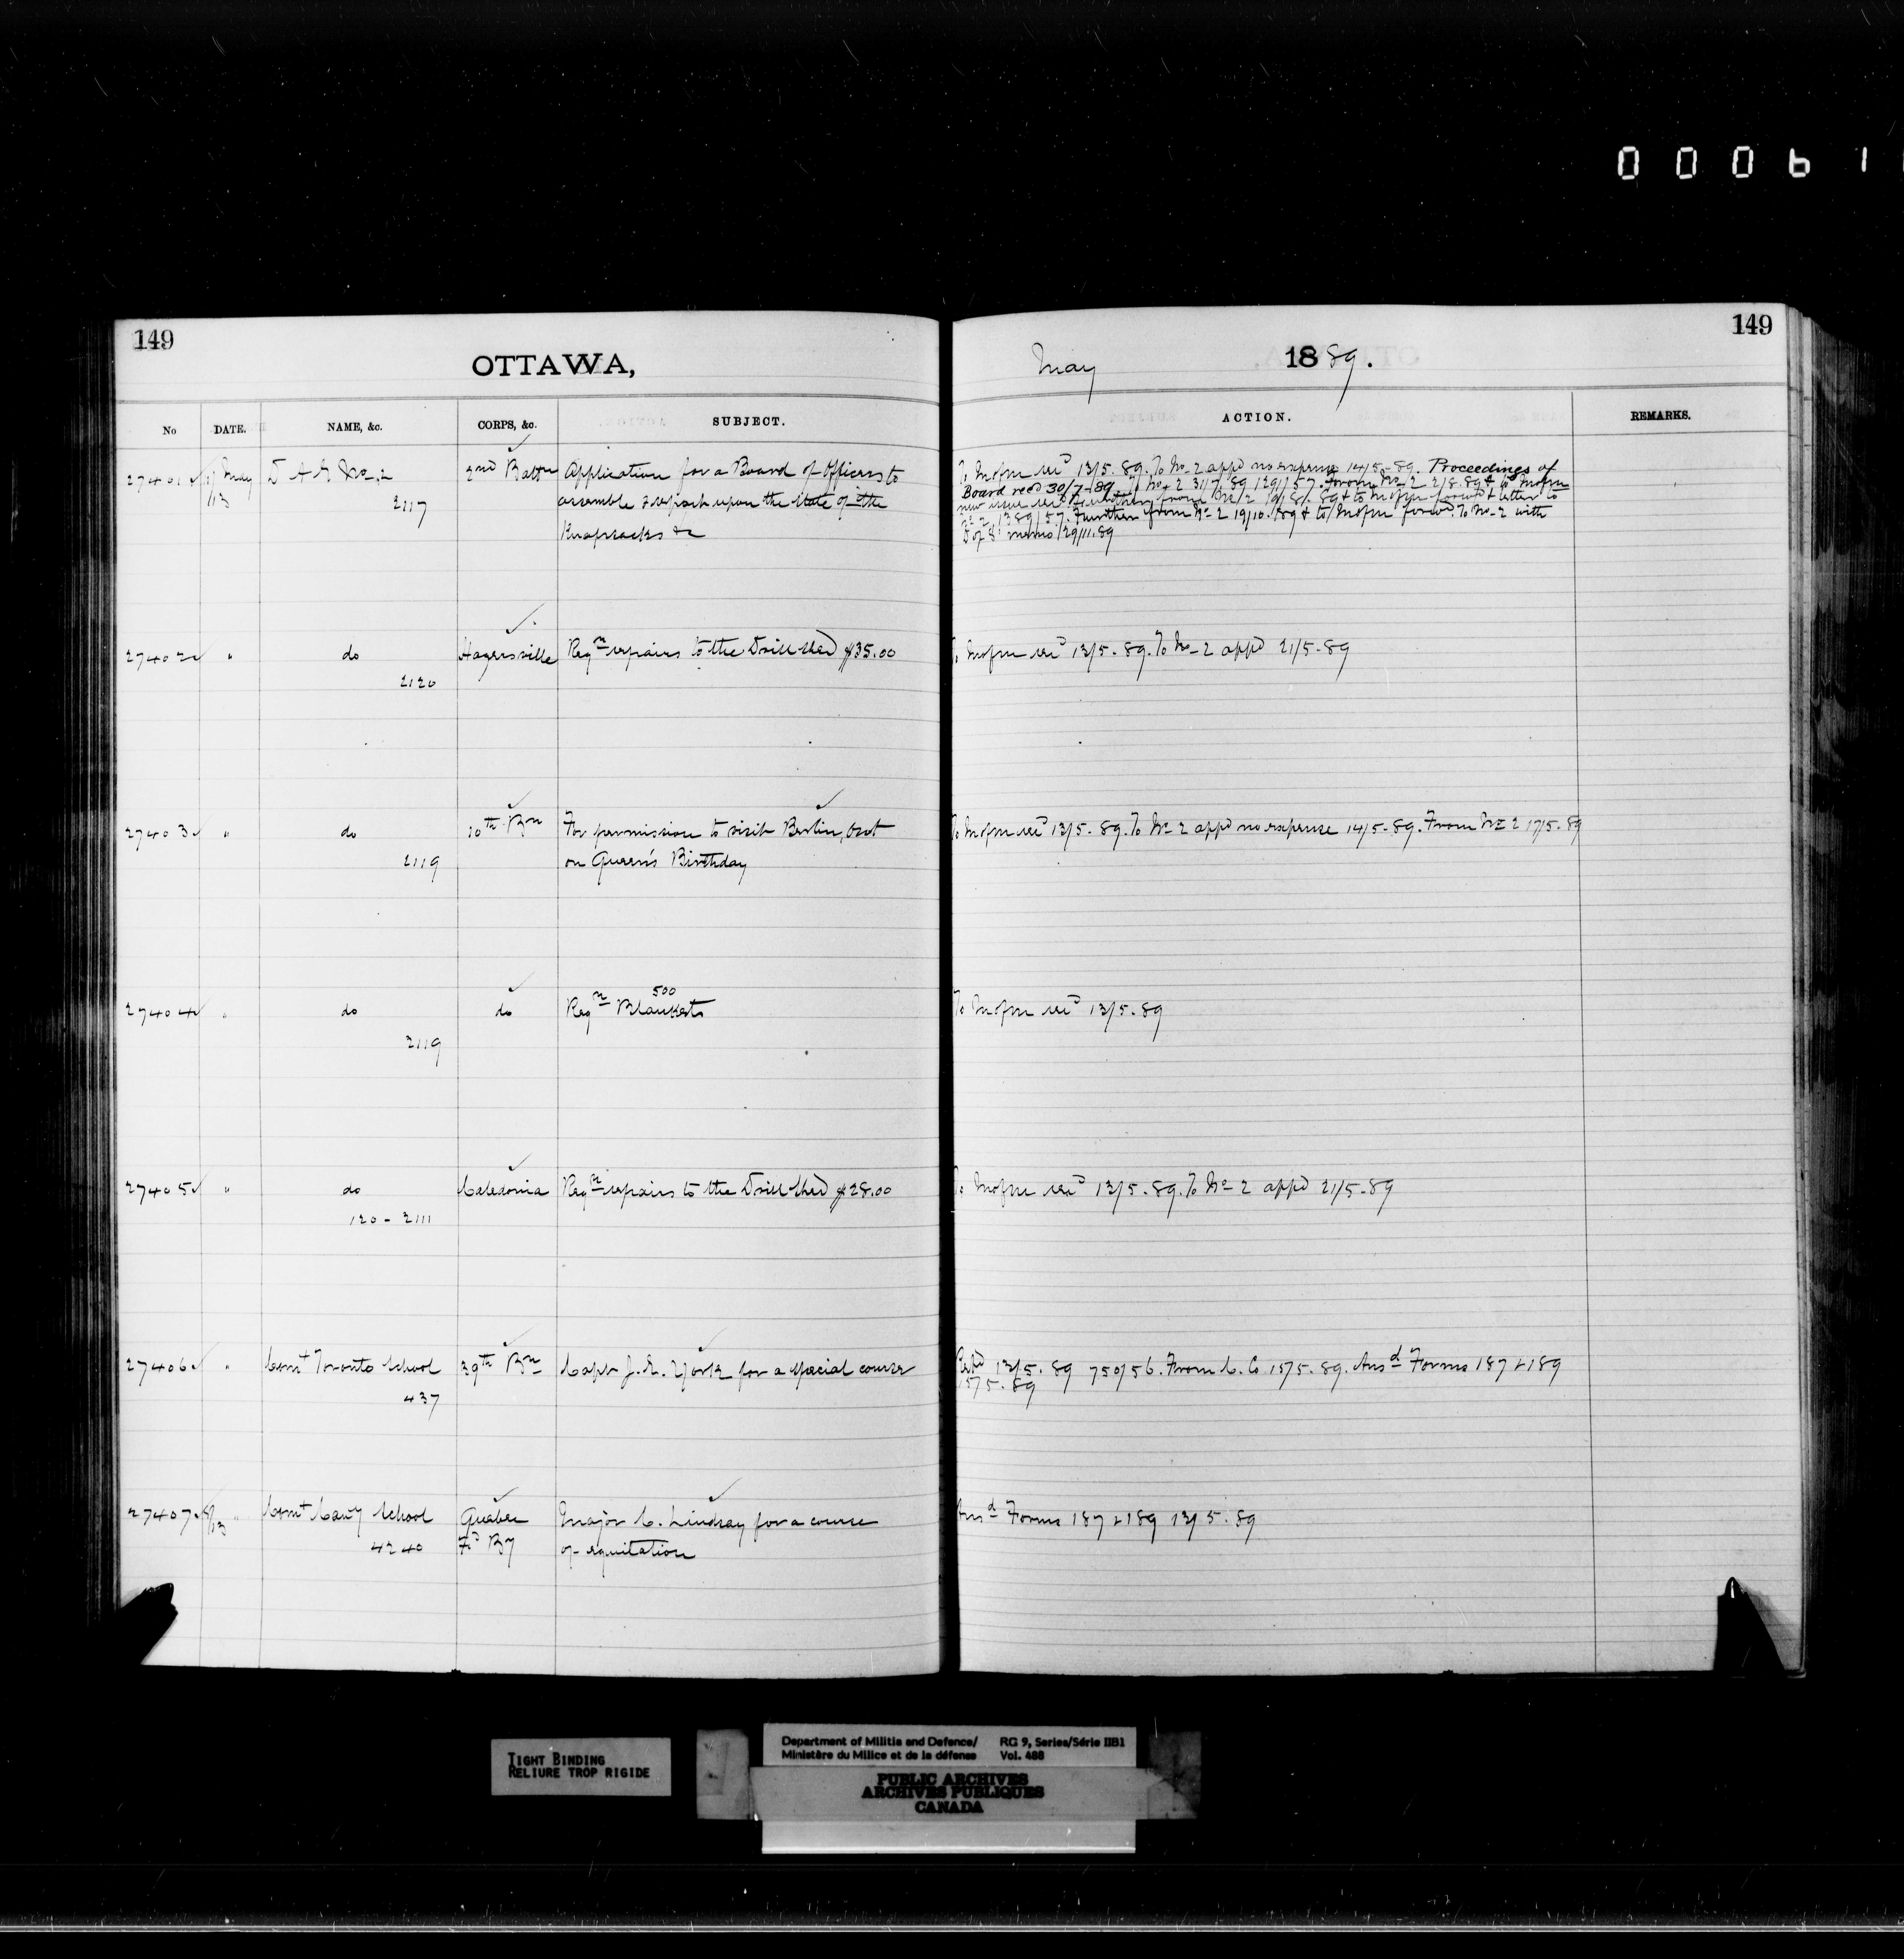 0 0 0 6 1
149
149
OTTAWA,
May 1889.
No DATE. NAME, &c. CORPS, &c. SUBJECT. ACTION. REMARKS.
27401 11/13 May D A G No 2 2nd Battn Application for a Board of Officers to
2117 assemble & report upon the state of the
Knapsacks &c
13/5.89. To No 2 appd no expense 14/5-89. Proceedings of
Board recd 30/7-89. To No 2 31/7.89 129/57. From No 2 2/8.89 & to
new issue
No 2 Further from No 2 19/10.89 & to To No 2 with
D of S memo 29/11.89
27402 " do Hagersville Reqn repairs to the Drill Shed $35.00
2120
13/5.89. To No 2 appd 21/5-89
27403 " do 10th Bn For permission to visit Berlin, Ont
2119 on Queen's Birthday
13/5-89. To No 2 appd no expense 14/5-89. From No 2 17/5.89
27404 " do do Reqn 500 Blankets
2119
13/5-89
27405 " do Caledonia Reqn repairs to the Drill Shed $28.00
120 - 2111
13/5.89. To No 2 appd 21/5-89
27406 " Comt Toronto School 39th Bn Capt J. E. York for a special course
437
13/5.89 750/56. From C. Co 15/5.89. Ansd Forms 187 & 189
15/5.89
27407 8/13 " Comt Cavy School Quebec Major C. Lindsay for a course
4240 Fd By of equitation
Ansd Forms 187 & 189 13/5.89
TIGHT BINDING
RELIURE TROP RIGIDE
Department of Militia and Defence/ RG 9, Series/Série IIB1
Ministère du Milice et de la défense Vol. 488
PUBLIC ARCHIVES
ARCHIVES PUBLIQUES
CANADA